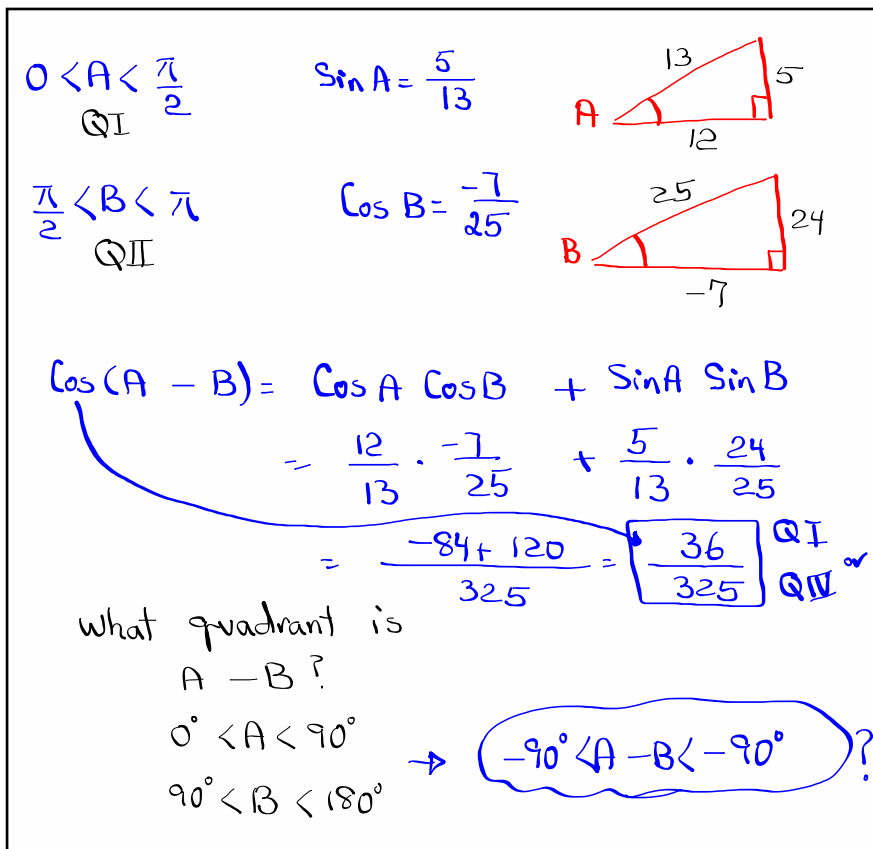 0 < A < π/2 Sin A = 5/13 13 5
QI A 12
π/2 < B < π Cos B = -7/25 25 24
QII B -7
Cos(A - B) = Cos A Cos B + Sin A Sin B
= 12/13 · -7/25 + 5/13 · 24/25
= -84 + 120 / 325 = 36/325 QI or QIV
what quadrant is
A - B?
0° < A < 90°
90° < B < 180° → -90° < A - B < -90° ?